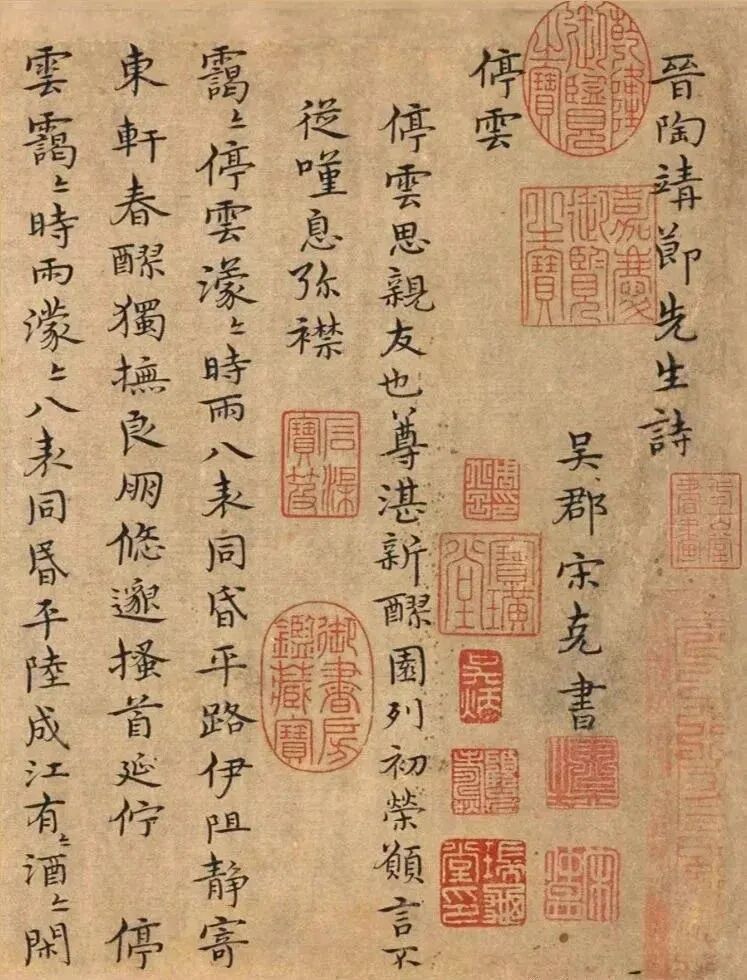 晉陶靖節先生詩
吳郡宋克書
停雲
停雲思親友也尊湛新醪園列初榮願言不
從嘆息弥襟
靄〻停雲濛〻時雨八表同昏平路伊阻靜寄
東軒春醪獨撫良朋悠邈搔首延佇　停
雲靄〻時雨濛〻八表同昏平陸成江有〻酒〻閑
乾隆御覽之寶
嘉慶御覽之寶
石渠寶笈
御書房鑑藏寶